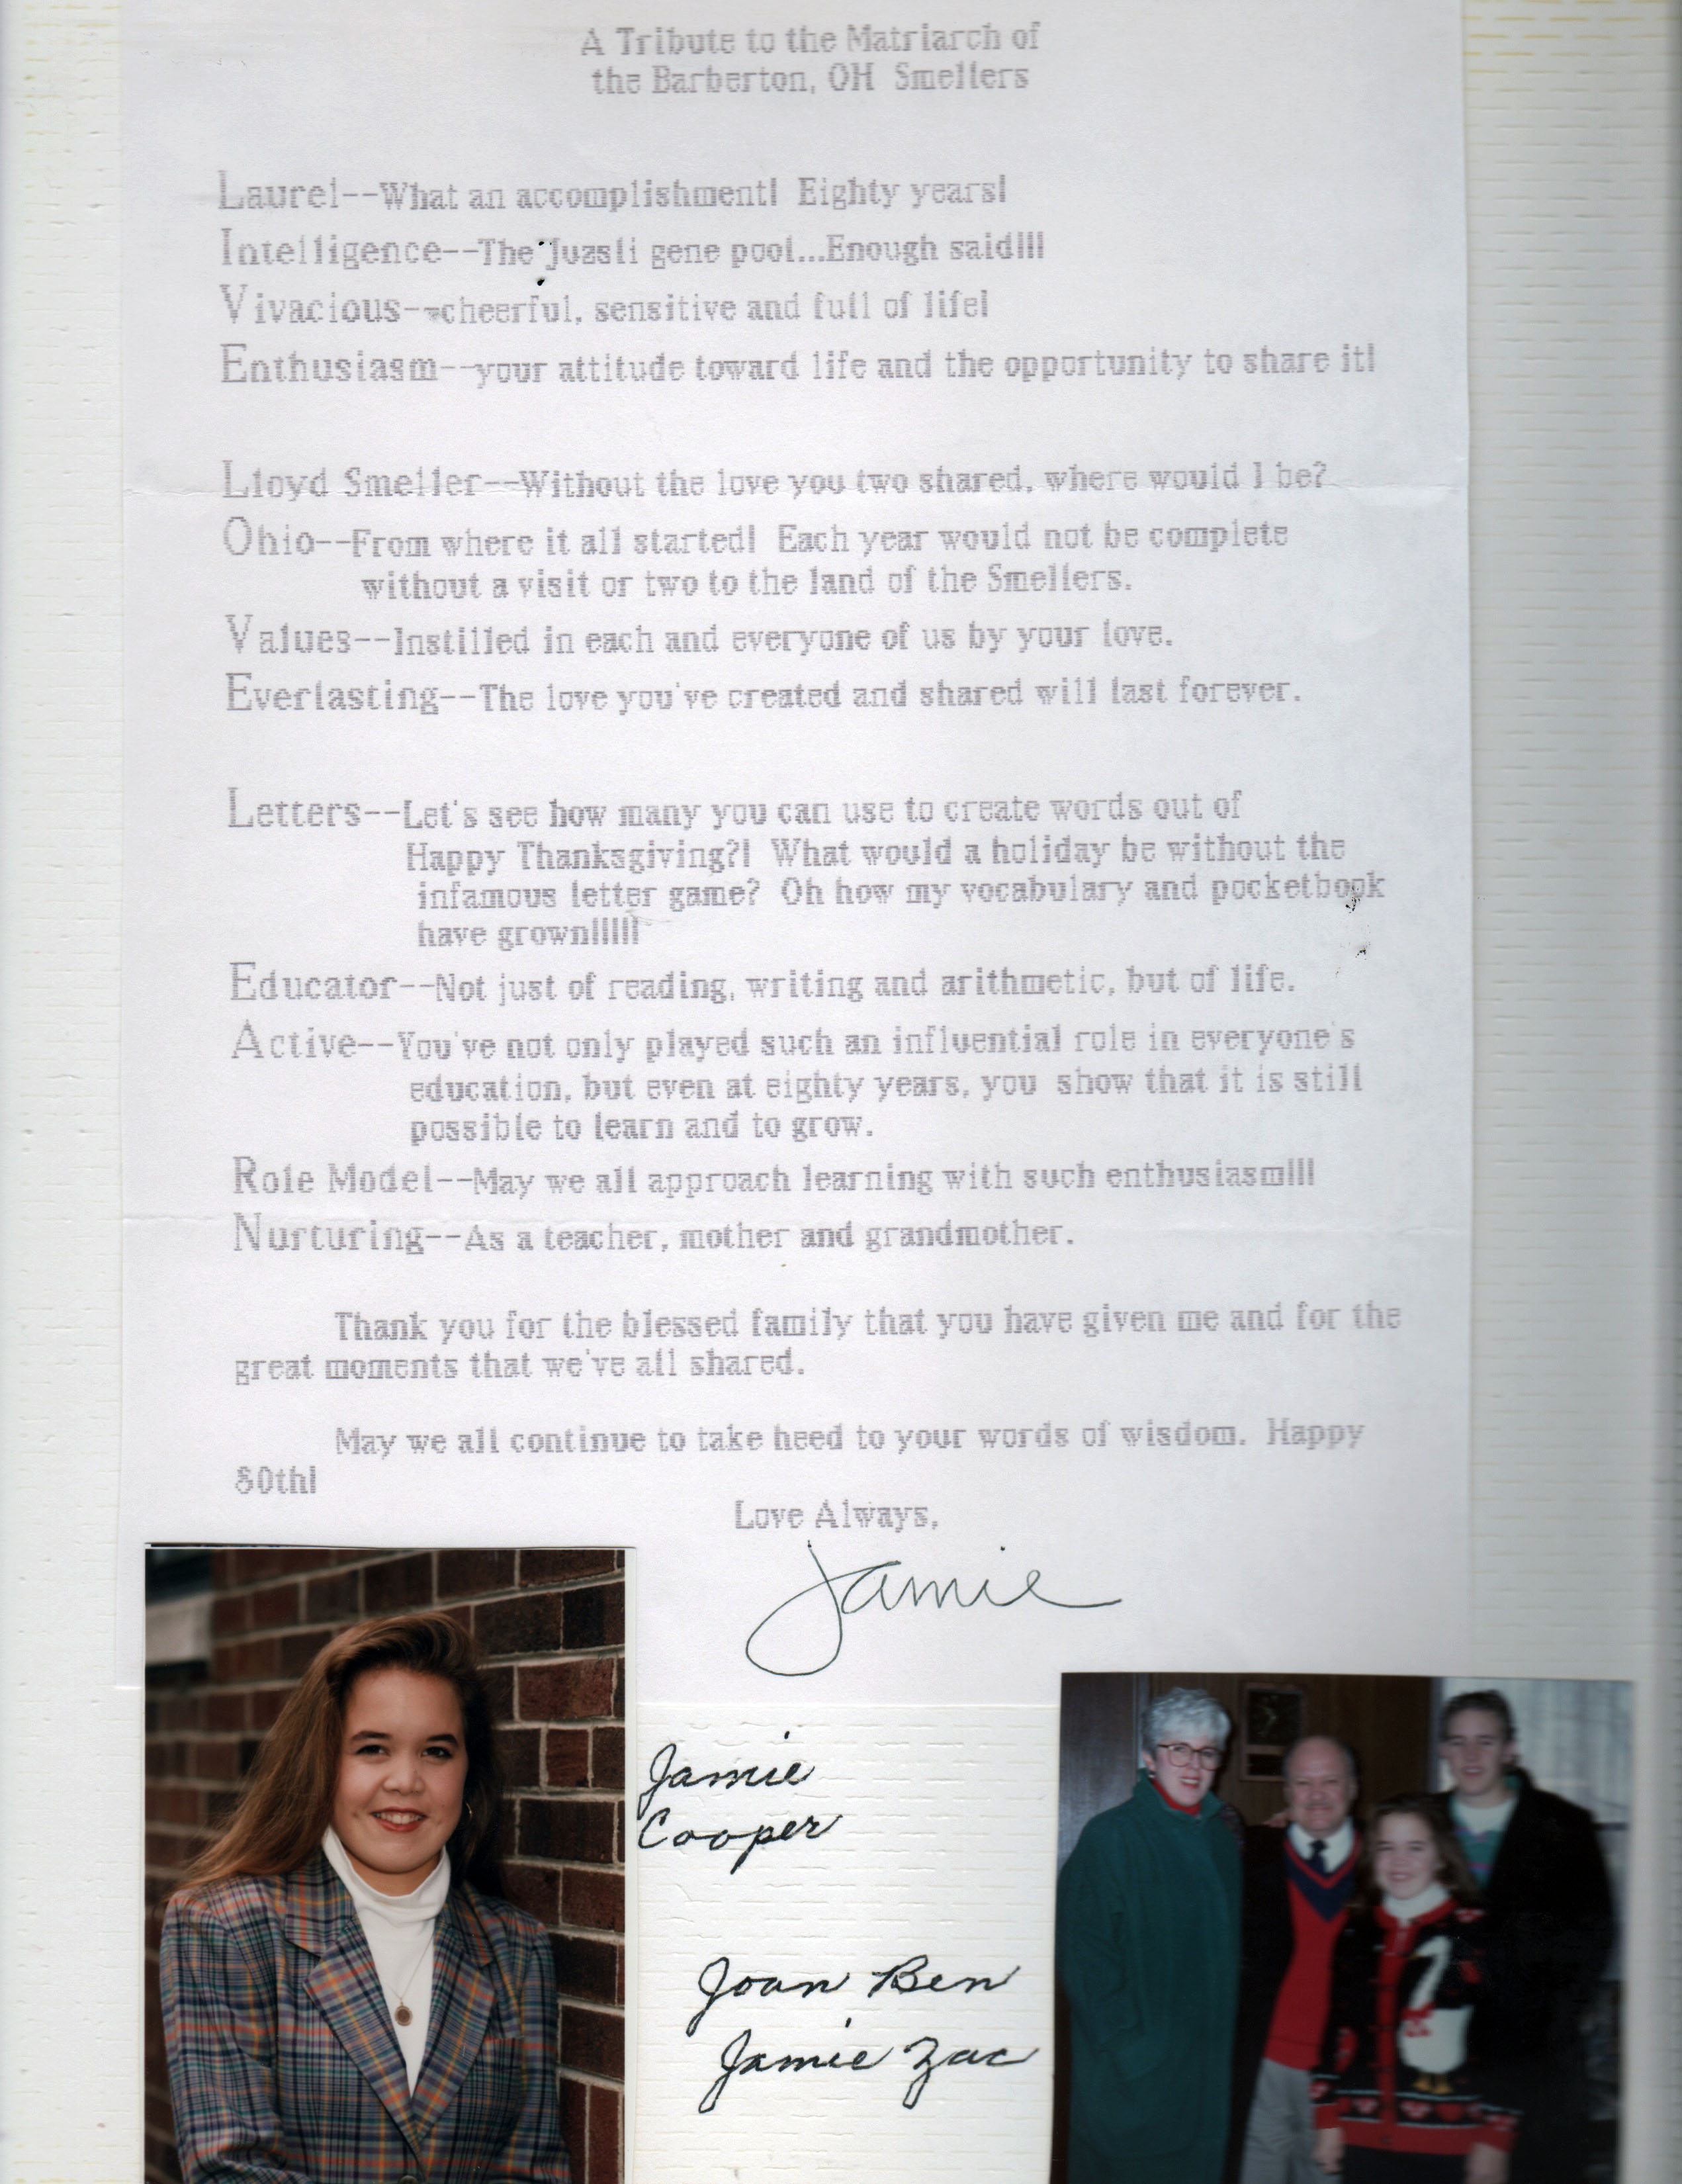 A Tribute to the Matriarch of
the Barberton, OH Smellers
Laurel--What an accomplishment! Eighty years!
Intelligence--The Juasli gene pool...Enough said!!!
Vivacious--cheerful, sensitive and full of life!
Enthusiasm--your attitude toward life and the opportunity to share it!
Lloyd Smeller--Without the love you two shared, where would I be?
Ohio--From where it all started! Each year would not be complete
without a visit or two to the land of the Smellers.
Values--Instilled in each and everyone of us by your love.
Everlasting--The love you've created and shared will last forever.
Letters--Let's see how many you can use to create words out of
Happy Thanksgiving?! What would a holiday be without the
infamous letter game? Oh how my vocabulary and pocketbook
have grown!!!!!
Educator--Not just of reading, writing and arithmetic, but of life.
Active--You've not only played such an influential role in everyone's
education, but even at eighty years, you show that it is still
possible to learn and to grow.
Role Model--May we all approach learning with such enthusiasm!!!
Nurturing--As a teacher, mother and grandmother.
Thank you for the blessed family that you have given me and for the
great moments that we've all shared.
May we all continue to take heed to your words of wisdom. Happy
80th!
Love Always,
Jamie
Jamie
Cooper
Joan Ben
Jamie Zac